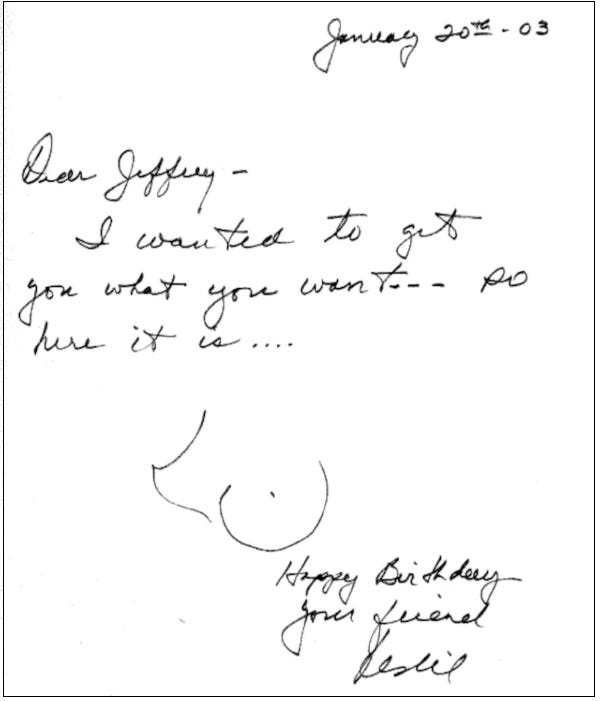 January 20th - 03
Dear Jeffrey -
I wanted to get
you what you want--- so
here it is....
Happy Birthday
your friend
Leslie